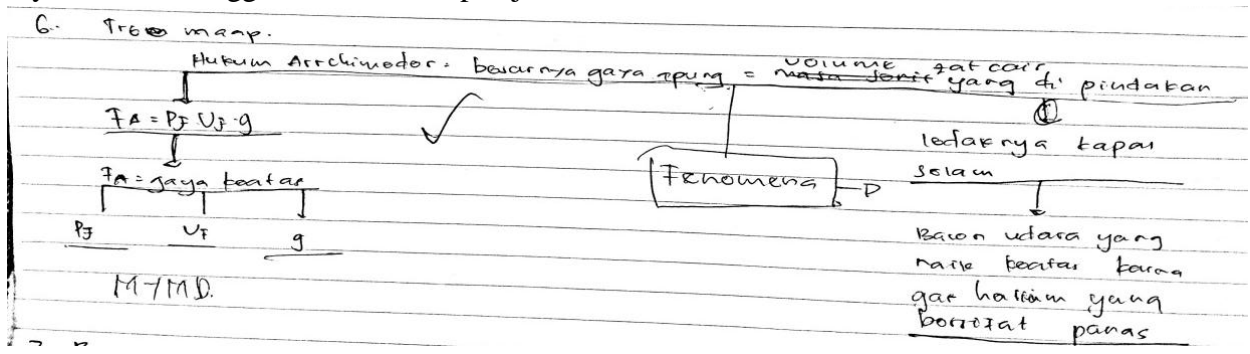 6. Tree maap.
Hukum Arrchimedor. besarnya gaya apung = volume zat cair yang di pindakan
FA = Pf Vf . g
FA = gaya keatas
Pf Vf g
M-1MD.
Fenomena
ledaknya kapal
selam
Bacon udara yang
naik keatas karna
gas yang
panas